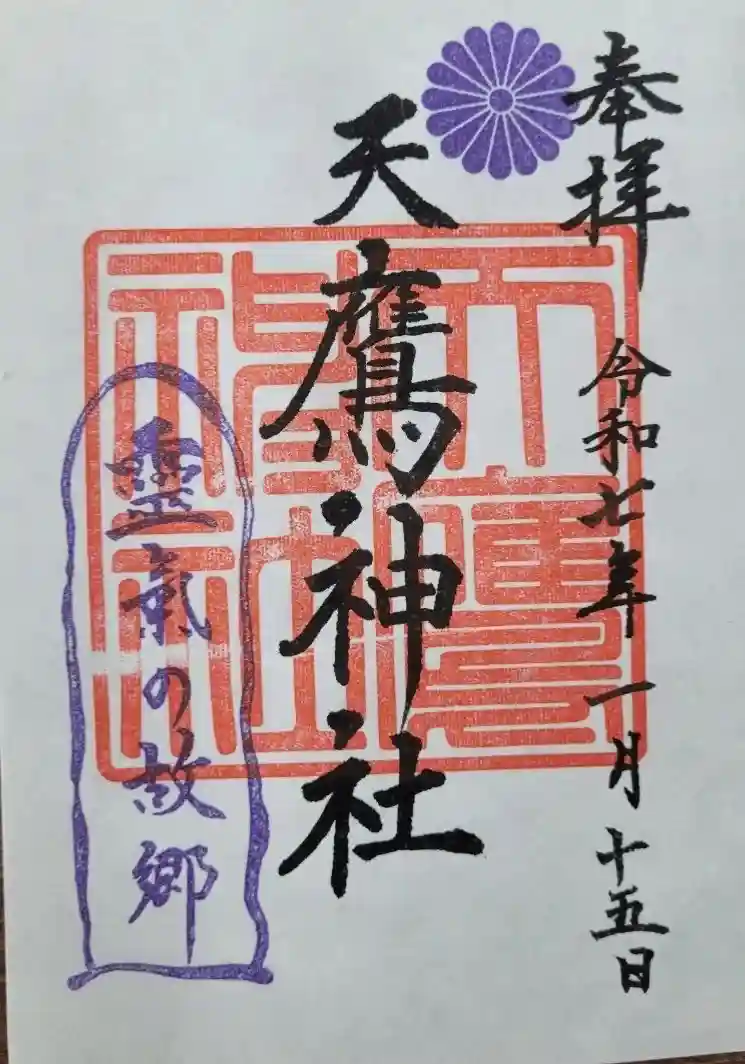 奉拝
令和七年一月十五日
天鷹神社
天鷹神社
靈氣の故郷